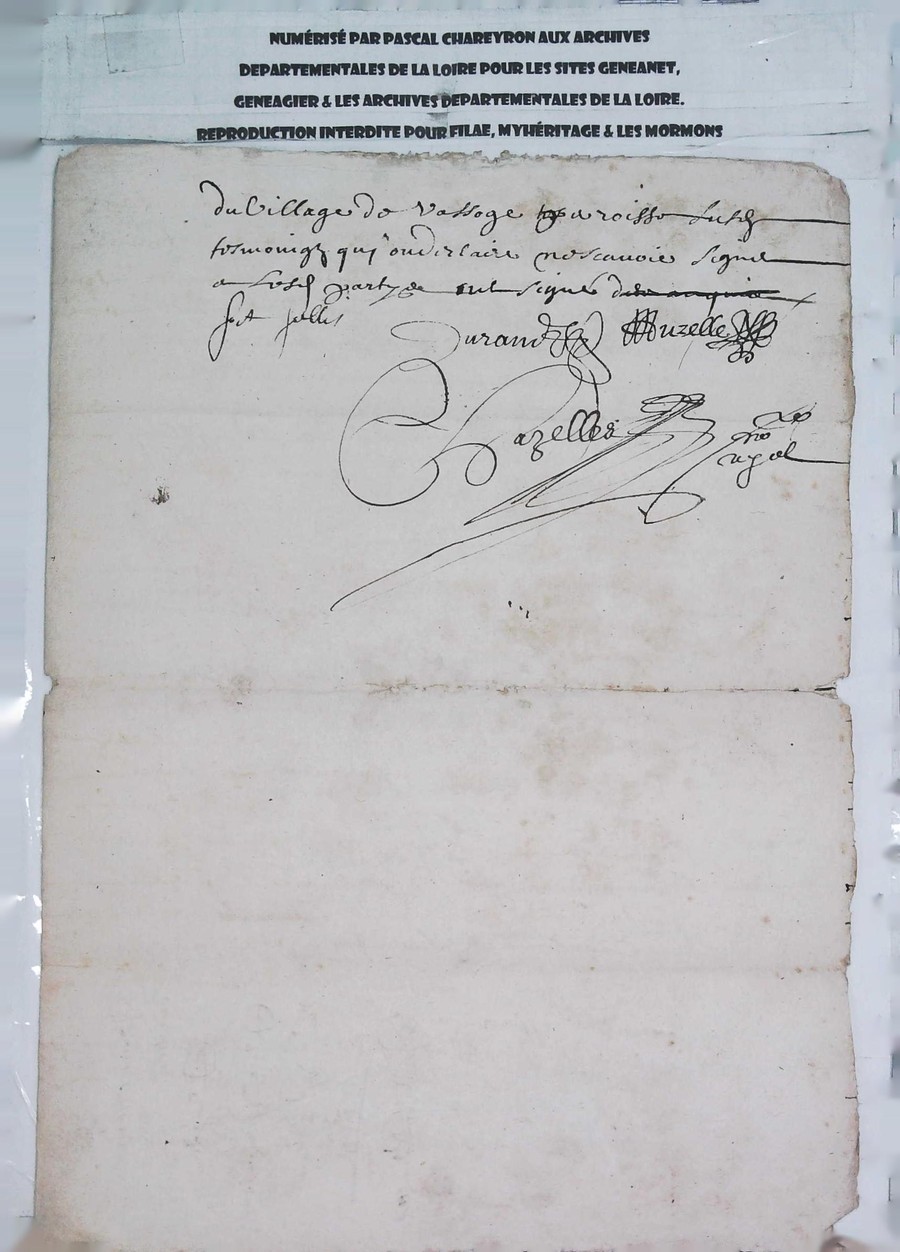 NUMÉRISÉ PAR PASCAL CHAREYRON AUX ARCHIVES
DEPARTEMENTALES DE LA LOIRE POUR LES SITES GENEANET,
GENEAGIER & LES ARCHIVES DEPARTEMENTALES DE LA LOIRE.
REPRODUCTION INTERDITE POUR FILAE, MYHÉRITAGE & LES MORMONS
du Village de Vassoge paroisse
tesmoingz qui ont desclaire ne scavoir signe
partye ont signes
Durand Muzelle
Chazelles
no
royal